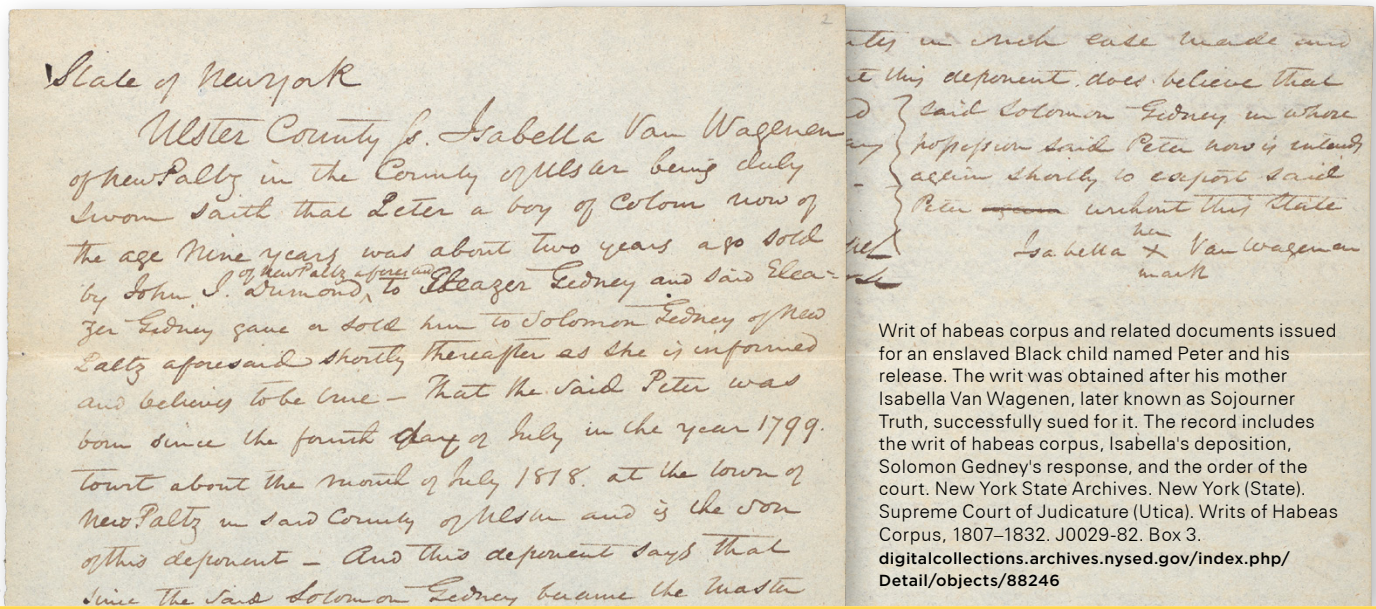 2
State of Newyork
Ulster County ss. Isabella Van Wagenen
of New Paltz in the County of Ulster being duly
sworn saith that Peter a boy of Colour now of
the age Nine years was about two years ago sold
of New Paltz aforesaid
by John I. Dumond, to Eleazer Gedney and said Elea-
zer Gidney gave or sold him to Solomon Gedney of New
Paltz aforesaid shortly thereafter as she is informed
and believes to be true – That the said Peter was
born since the fourth day of July in the year 1799.
towit about the month of July 1818. at the town of
New Paltz in said County of Ulster and is the son
of this deponent – And this deponent says that
since the said Solomon Gedney became the master
in such case made and
this deponent does believe that
said Solomon Gidney in whose
possession said Peter now is intends
again shortly to export said
Peter without this State
her
Isabella X Van Wagenen
mark
Writ of habeas corpus and related documents issued
for an enslaved Black child named Peter and his
release. The writ was obtained after his mother
Isabella Van Wagenen, later known as Sojourner
Truth, successfully sued for it. The record includes
the writ of habeas corpus, Isabella's deposition,
Solomon Gedney's response, and the order of the
court. New York State Archives. New York (State).
Supreme Court of Judicature (Utica). Writs of Habeas
Corpus, 1807–1832. J0029-82. Box 3.
digitalcollections.archives.nysed.gov/index.php/
Detail/objects/88246